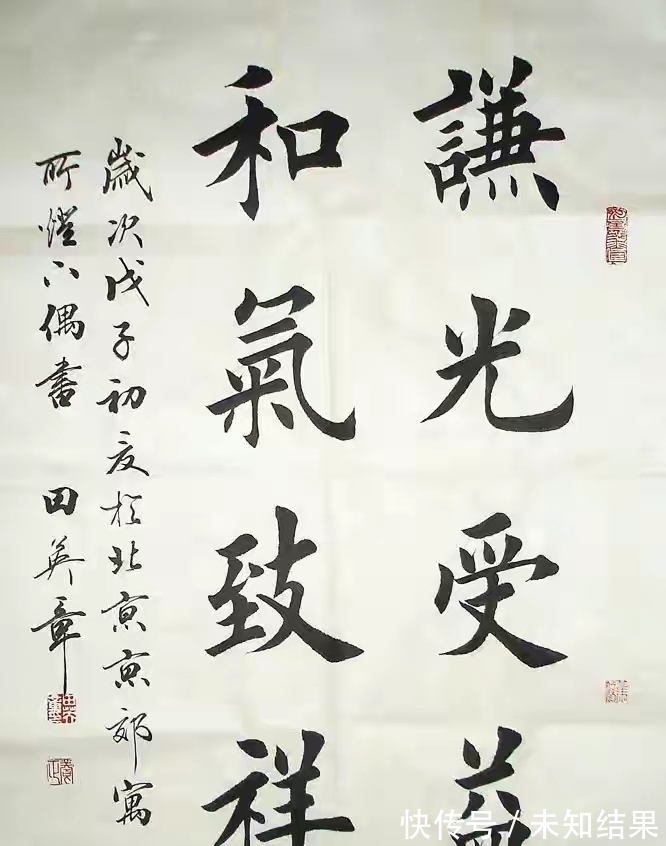 謙光受益
和氣致祥
歲次戊子初夏於北京京郊寓
所燈下偶書 田英章
快传号 / 未知结果